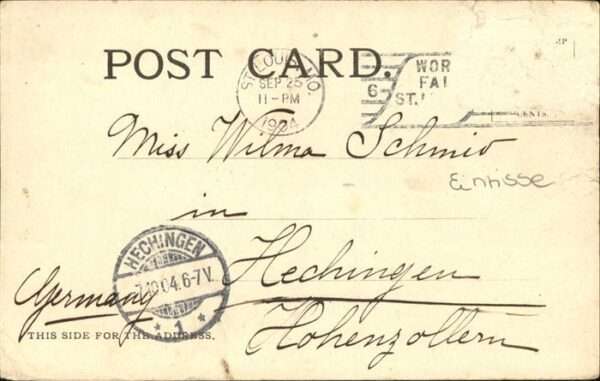 POST CARD.
ST. LOUIS, MO.
SEP 25
11-PM
1904
6-
WOR
FAI
ST.
CENTS.
Miss Wilma Schmid
Einrisse
in
Hechingen
Hohenzollern
Germany
HECHINGEN
7.10.04.6-7V.
* 1 *
THIS SIDE FOR THE ADDRESS.